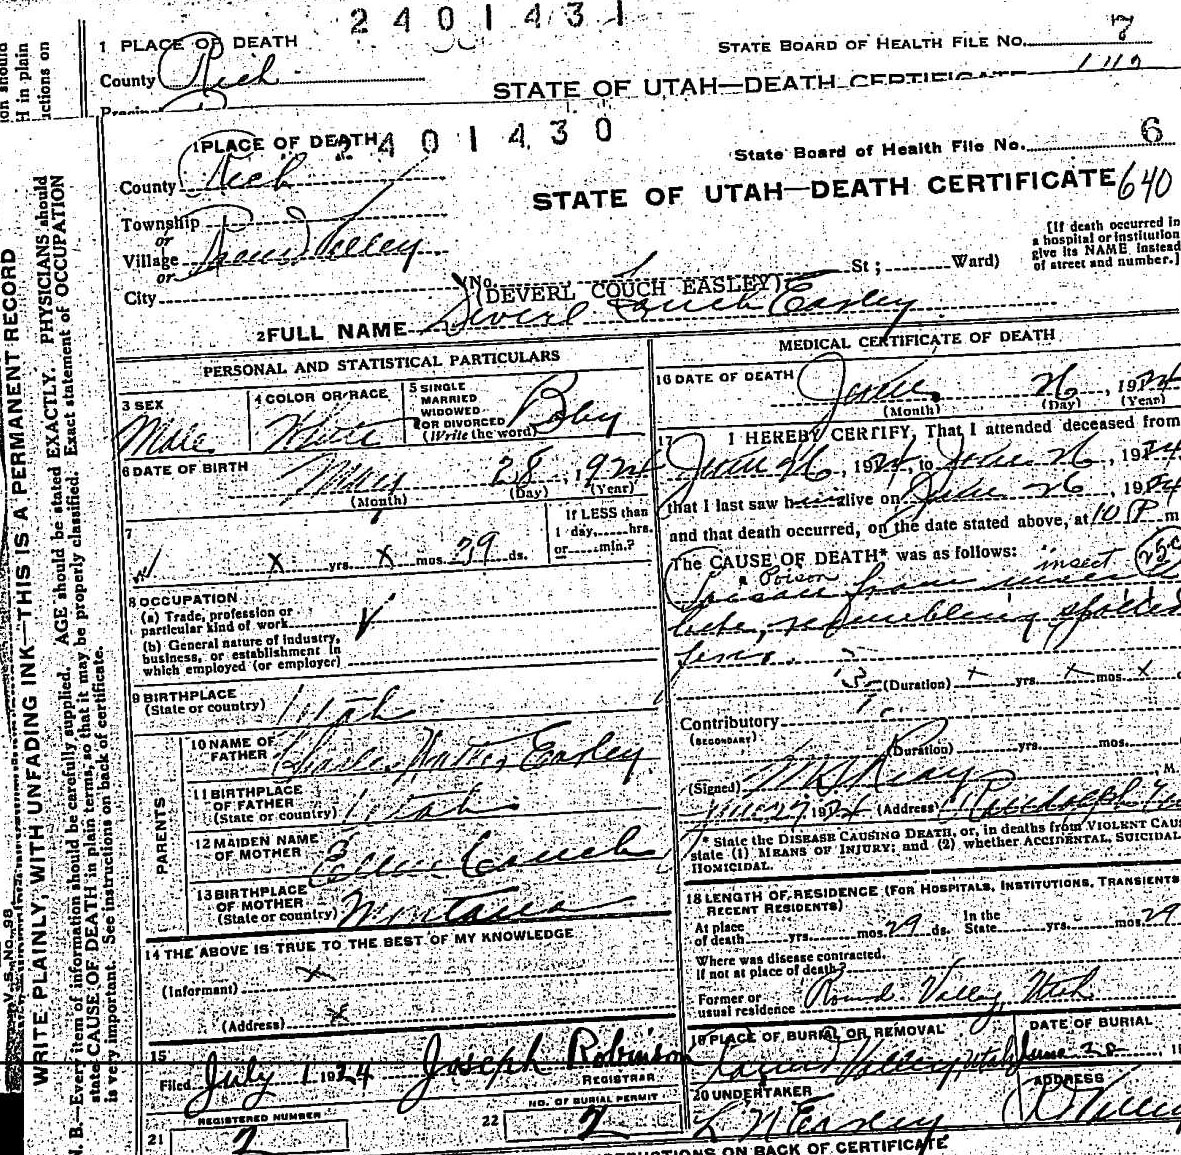 2401431
1 PLACE OF DEATH
STATE BOARD OF HEALTH FILE NO. 7
County Rich
STATE OF UTAH—DEATH CERTIFICATE
2401430
1 PLACE OF DEATH
State Board of Health File No. 6
County Rich
STATE OF UTAH—DEATH CERTIFICATE 640
Township
or
Village Round Valley
or
City
(No. St; Ward)
[If death occurred in
a hospital or institution
give its NAME instead
of street and number.]
(DEVERL COUCH EASLEY)
2 FULL NAME Deverl Couch Easley
PERSONAL AND STATISTICAL PARTICULARS
3 SEX
Male
4 COLOR OR RACE
White
5 SINGLE
MARRIED
WIDOWED
OR DIVORCED
(Write the word)
Baby
6 DATE OF BIRTH
May 28, 1924
(Month) (Day) (Year)
7
x yrs. x mos. 29 ds.
If LESS than
1 day, hrs.
or min.?
8 OCCUPATION
(a) Trade, profession or
particular kind of work
(b) General nature of industry,
business, or establishment in
which employed (or employer)
9 BIRTHPLACE
(State or country) Utah
PARENTS
10 NAME OF
FATHER Charles Easley
11 BIRTHPLACE
OF FATHER
(State or country) Utah
12 MAIDEN NAME
OF MOTHER Couch
13 BIRTHPLACE
OF MOTHER
(State or country) Montana
14 THE ABOVE IS TRUE TO THE BEST OF MY KNOWLEDGE
(Informant) x
(Address) x
15
Filed July 1 1924 Joseph Robinson
REGISTRAR
REGISTERED NUMBER
21 2
NO. OF BURIAL PERMIT
22 2
MEDICAL CERTIFICATE OF DEATH
16 DATE OF DEATH
June 26, 1924
(Month) (Day) (Year)
17 I HEREBY CERTIFY, That I attended deceased from
June 26, 1924, to June 26, 1924
that I last saw him alive on June 26, 1924
and that death occurred, on the date stated above, at 10 P m
The CAUSE OF DEATH* was as follows:
Poison insect
Poison from
bite, resembling spotted
fever.
(Duration) x yrs. x mos. x
Contributory
(SECONDARY)
(Duration) yrs. mos.
(Signed) M.
June 27 1924 (Address) Randolph
* State the DISEASE CAUSING DEATH, or, in deaths from VIOLENT CAU
state (1) MEANS OF INJURY; and (2) whether ACCIDENTAL, SUICIDAL
HOMICIDAL.
18 LENGTH OF RESIDENCE (FOR HOSPITALS, INSTITUTIONS, TRANSIENTS
RECENT RESIDENTS)
At place
of death yrs. mos. 29 ds.
In the
State yrs. mos. 29
Where was disease contracted,
if not at place of death?
Former or
usual residence Round Valley, Utah
19 PLACE OF BURIAL OR REMOVAL
Round Valley, Utah
DATE OF BURIAL
June 28
20 UNDERTAKER
L N Easley
ADDRESS
R Valley
INSTRUCTIONS ON BACK OF CERTIFICATE
V. S. No. 98
WRITE PLAINLY, WITH UNFADING INK—THIS IS A PERMANENT RECORD
N. B.—Every item of information should be carefully supplied. AGE should be stated EXACTLY. PHYSICIANS should
state CAUSE OF DEATH in plain terms, so that it may be properly classified. Exact statement of OCCUPATION
is very important. See instructions on back of certificate.